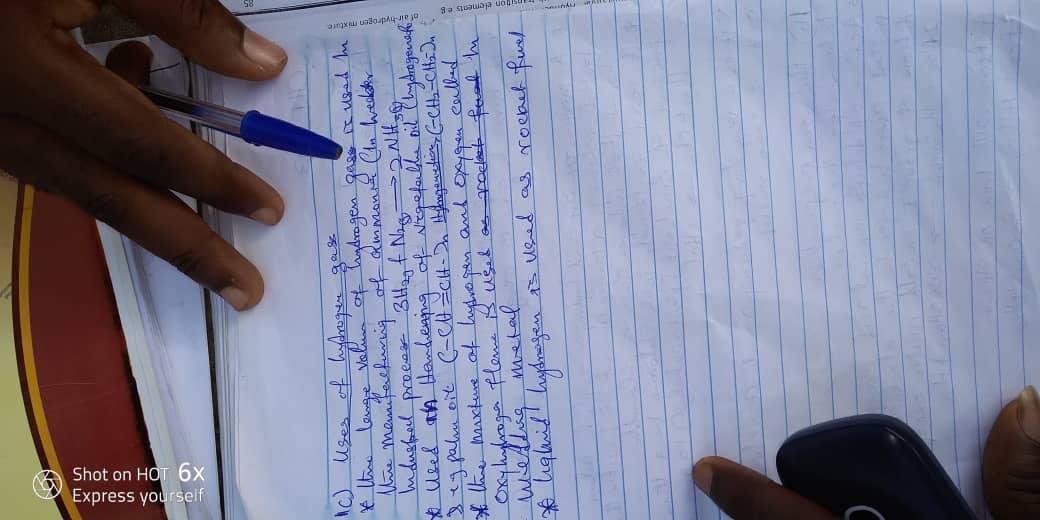 1c) Uses of hydrogen gas
* the large volume of hydrogen gas is used in
the manufacturing of ammonia (In heeder
Industrial process 3H2(g) + N2(g) → 2NH3(g)
* Used Hardening of Vegetable oil (hydrogenate
eg palm oil (-CH=CH-)n Hydrogenation (-CH2-CH2-)n
* the mixture of hydrogen and oxygen called
oxy-hydrogen flame is used as rocket fuel in
Welding metal
* liquid hydrogen is used as rocket fuel
transition elements e.g.
of air-hydrogen mixture
85
Shot on HOT 6X
Express yourself